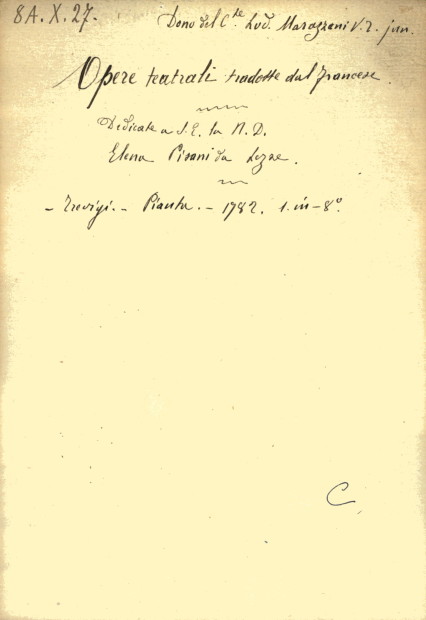 8A.X.27.
Dono del C.te Lod. Marazzani V. jun.
Opere teatrali tradotte dal francese.
Dedicate a S.E. la N.D.
Elena Pisani da Lezze.
- Trevigi. - Pianta. - 1782. 1. in-8º.
C